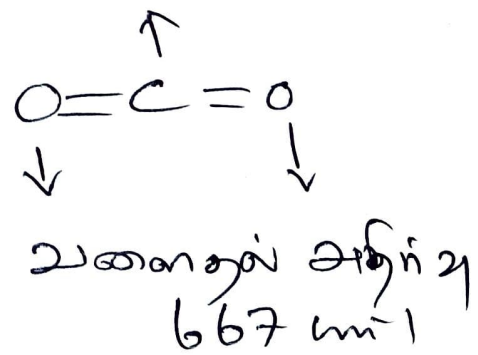 O=C=O
வளைதல் அதிர்வு
667 செமீ-1